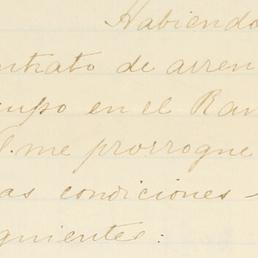 Habiendo
ntrato de arren
cupo en el Ran
me prorrogue
as condiciones -
guientes: